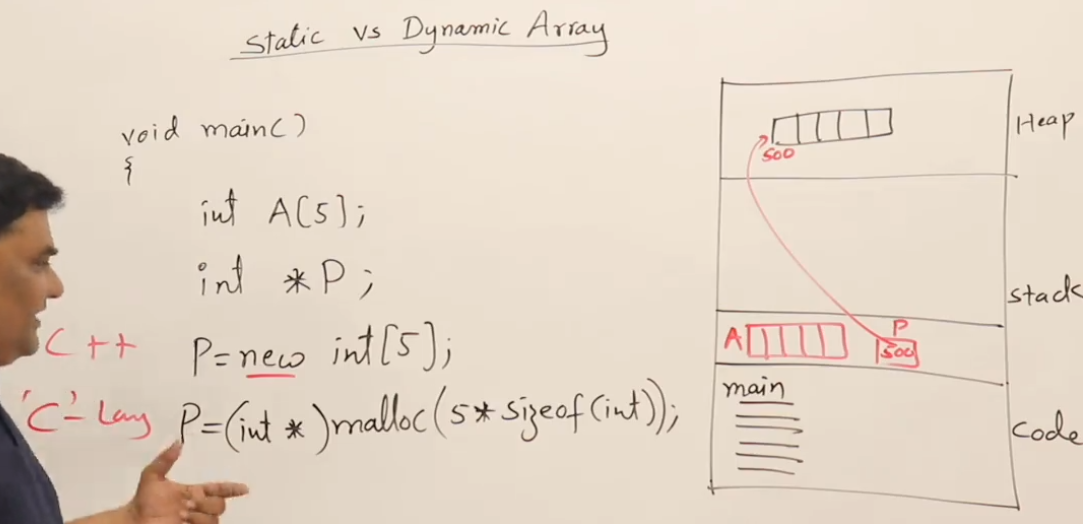 Static vs Dynamic Array
void main()
{
int A[5];
int *P;
C++ P=new int[5];
'C'-Lang P=(int *)malloc(5*sizeof(int));
Heap
500
Stack
A
P
500
main
Code